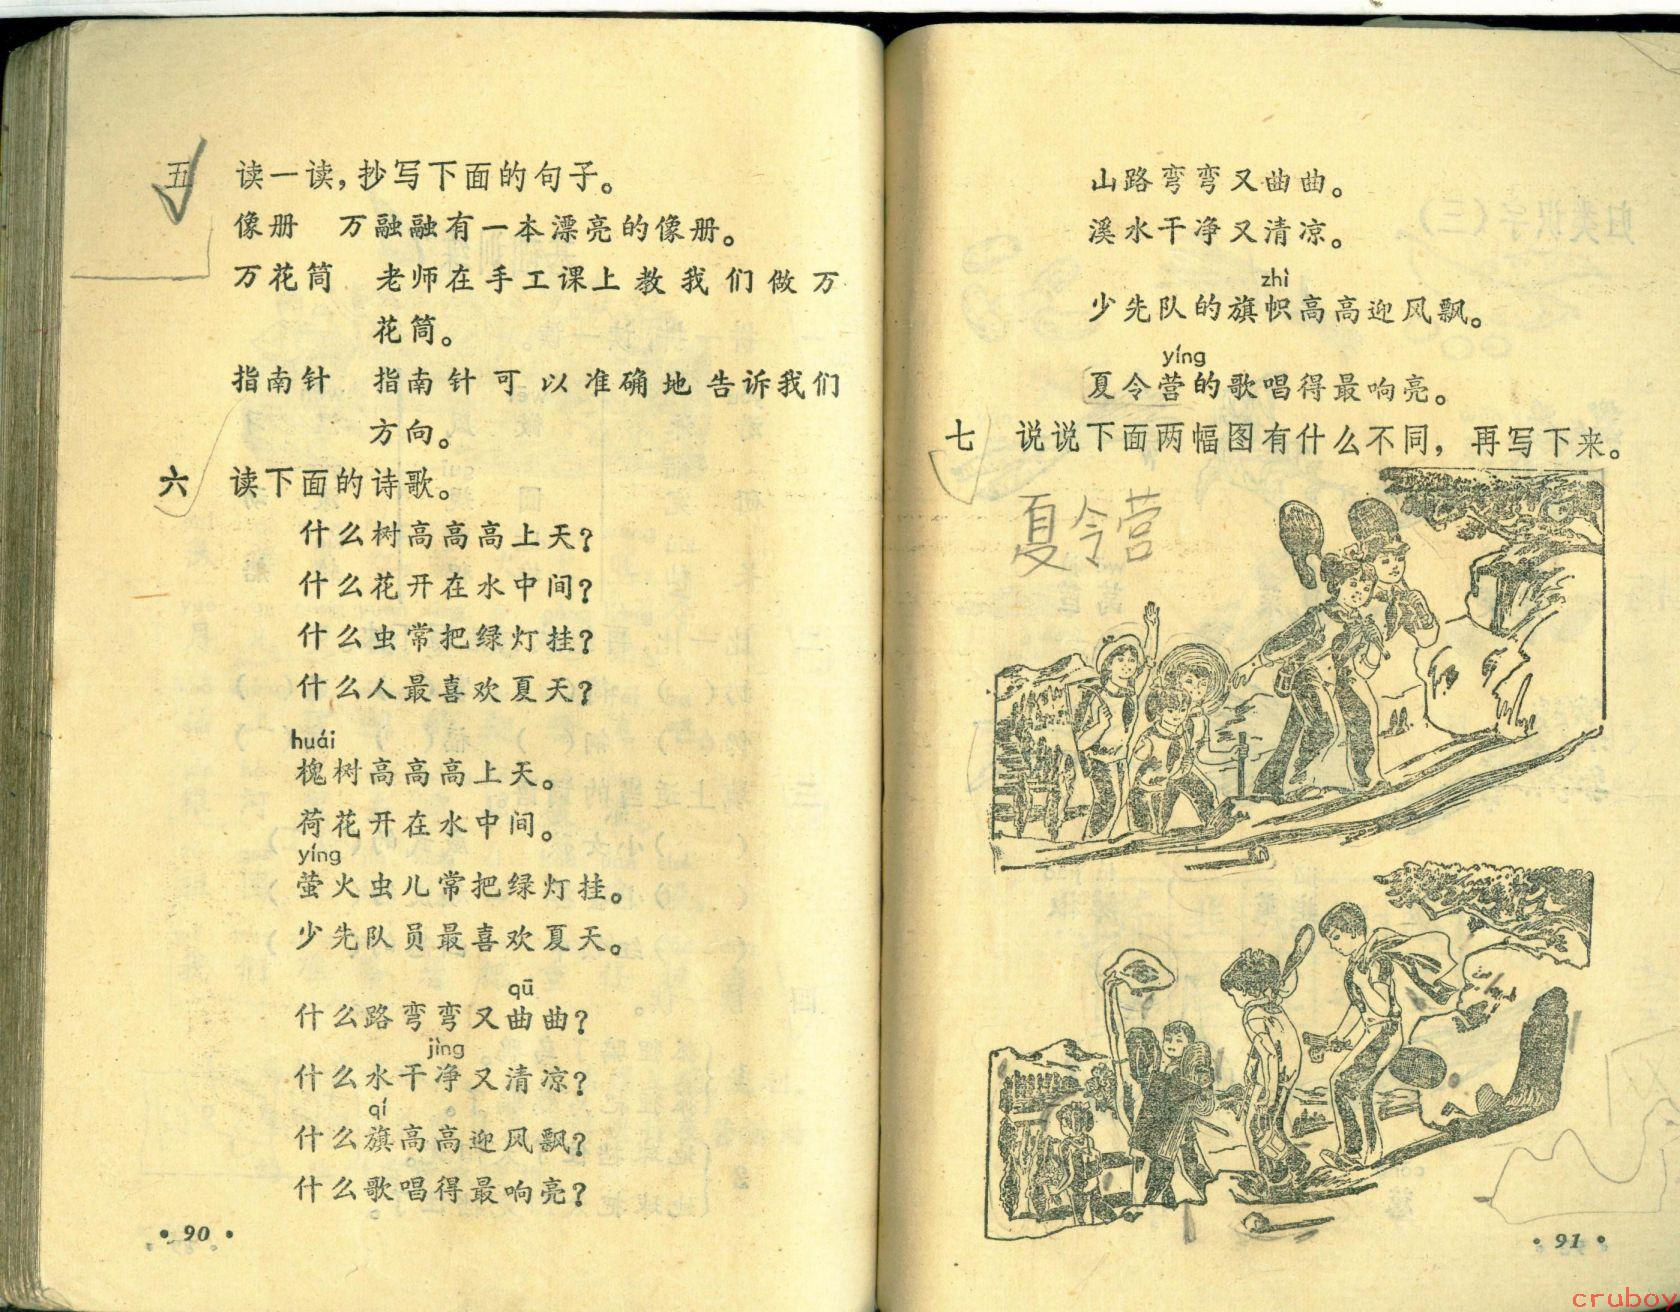 五 读一读，抄写下面的句子。
像册 万融融有一本漂亮的像册。
万花筒 老师在手工课上教我们做万
花筒。
指南针 指南针可以准确地告诉我们
方向。
六 读下面的诗歌。
什么树高高高上天？
什么花开在水中间？
什么虫常把绿灯挂？
什么人最喜欢夏天？
huái
槐树高高高上天。
荷花开在水中间。
yíng
萤火虫儿常把绿灯挂。
少先队员最喜欢夏天。
qū
什么路弯弯又曲曲？
jìng
什么水干净又清凉？
qí
什么旗高高迎风飘？
什么歌唱得最响亮？
• 90 •
山路弯弯又曲曲。
溪水干净又清凉。
zhì
少先队的旗帜高高迎风飘。
yíng
夏令营的歌唱得最响亮。
七 说说下面两幅图有什么不同，再写下来。
夏令营
• 91 •
cruboy